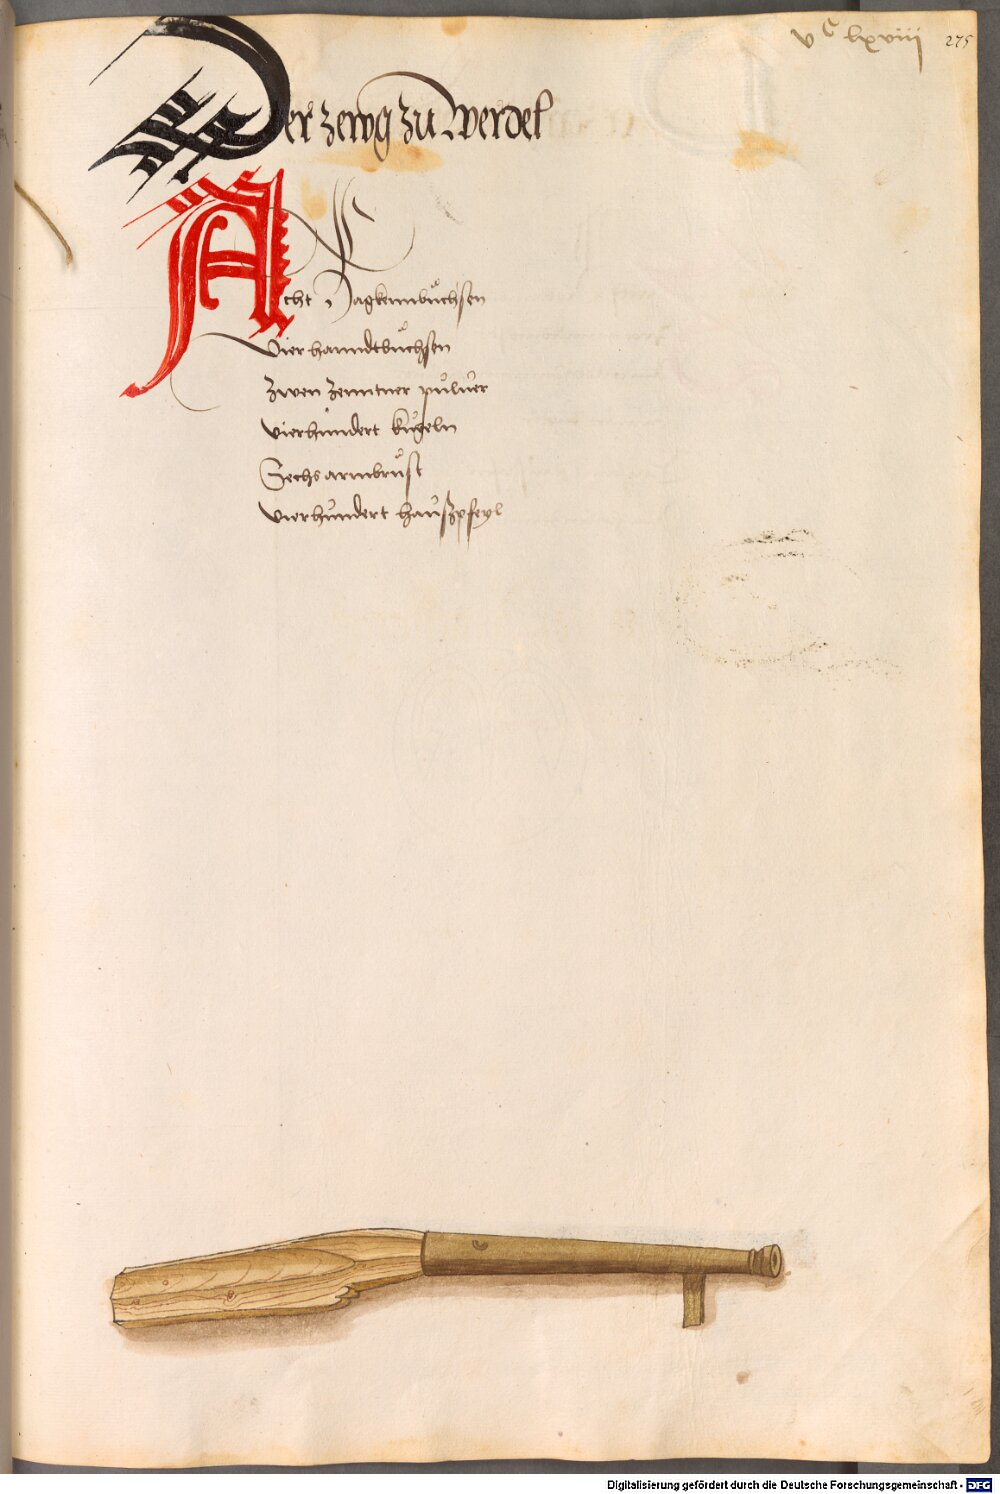 vᶜ lxviii 275
Der zewg zu Werdel
Acht Hagkennbůchsen
Vier hanndtbůchsen
Zwen Zenntner pulver
Vierhundert kugeln
Sechs armbrůst
Vierhundert haußpfeyl
Digitalisierung gefördert durch die Deutsche Forschungsgemeinschaft - DFG